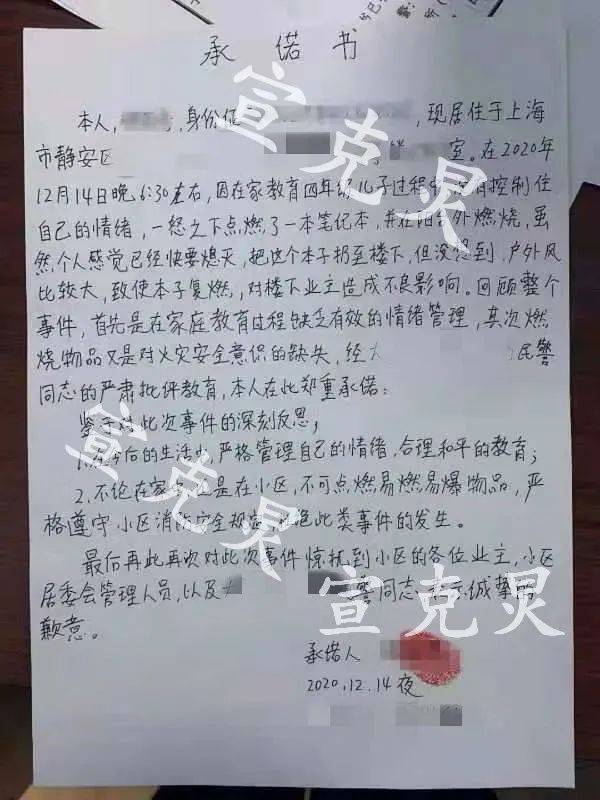 承诺书
本人，身份证，现居住于上海
市静安区室。在2020年
12月14日晚6:30左右，因在家教育四年级儿子过程中没有控制住
自己的情绪，一怒之下点燃了一本笔记本，并在阳台外燃烧，虽
然个人感觉已经快要熄灭，把这个本子扔至楼下，但没想到，户外风
比较大，致使本子复燃，对楼下业主造成不良影响。回顾整个
事件，首先是在家庭教育过程缺乏有效的情绪管理，其次燃
烧物品又是对火灾安全意识的缺失，经大民警
同志的严肃批评教育，本人在此郑重承诺：
鉴于对此次事件的深刻反思；
1.在今后的生活中，严格管理自己的情绪，合理和平的教育；
2.不论在家里还是在小区，不可点燃易燃易爆物品，严
格遵守小区消防安全规定，杜绝此类事件的发生。
最后再此再次对此次事件惊扰到小区的各位业主，小区
居委会管理人员，以及警同志表示诚挚的
歉意。
承诺人
2020.12.14夜
宣克灵
宣克灵
宣克灵